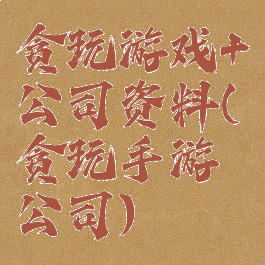 贪玩游戏+
公司资料(
贪玩手游
公司)